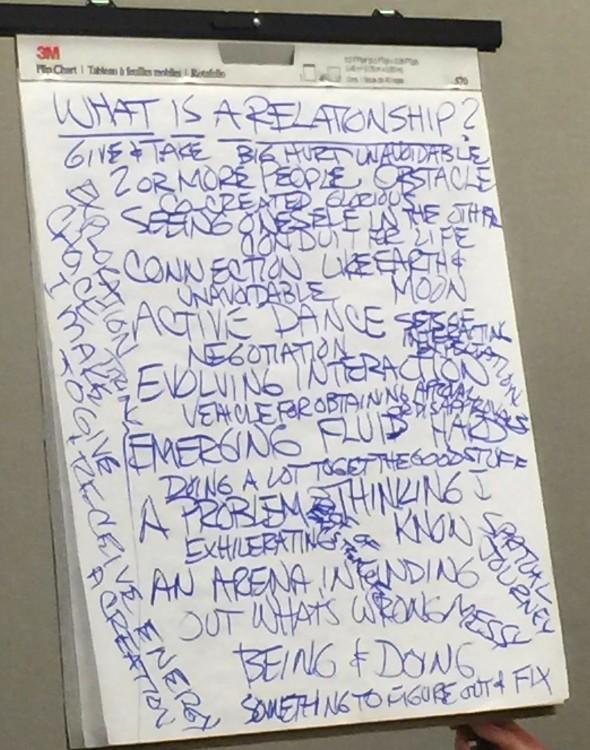 3M
Flip Chart | Tableau à feuilles mobiles | Rotafolio
570
WHAT IS A RELATIONSHIP?
GIVE & TAKE BIG HURT UNAVOIDABLE
2 OR MORE PEOPLE OBSTACLE
CO-CREATED GLORIOUS
SEEING ONESELF IN THE OTHER
CONDUIT LIFE
CONNECTION LIKE EARTH &
UNAVOIDABLE MOON
ACTIVE DANCE
NEGOTIATION
EVOLVING INTERACTION
VEHICLE FOR OBTAINING
OR DISAPPROVALS
EMERGING FLUID HARD
DOING A LOT TO GET THE GOOD STUFF
A PROBLEM THINKING I
KNOW
EXHILERATING
AN ARENA IN FINDING
OUT WHATS WRONG MESSY
SPIRITUAL
JOURNEY
BEING & DOING
SOMETHING TO FIGURE OUT & FIX
EXPLORATION
CHOICE I MAKE TO GIVE & RECEIVE ENERGY
A CREATION